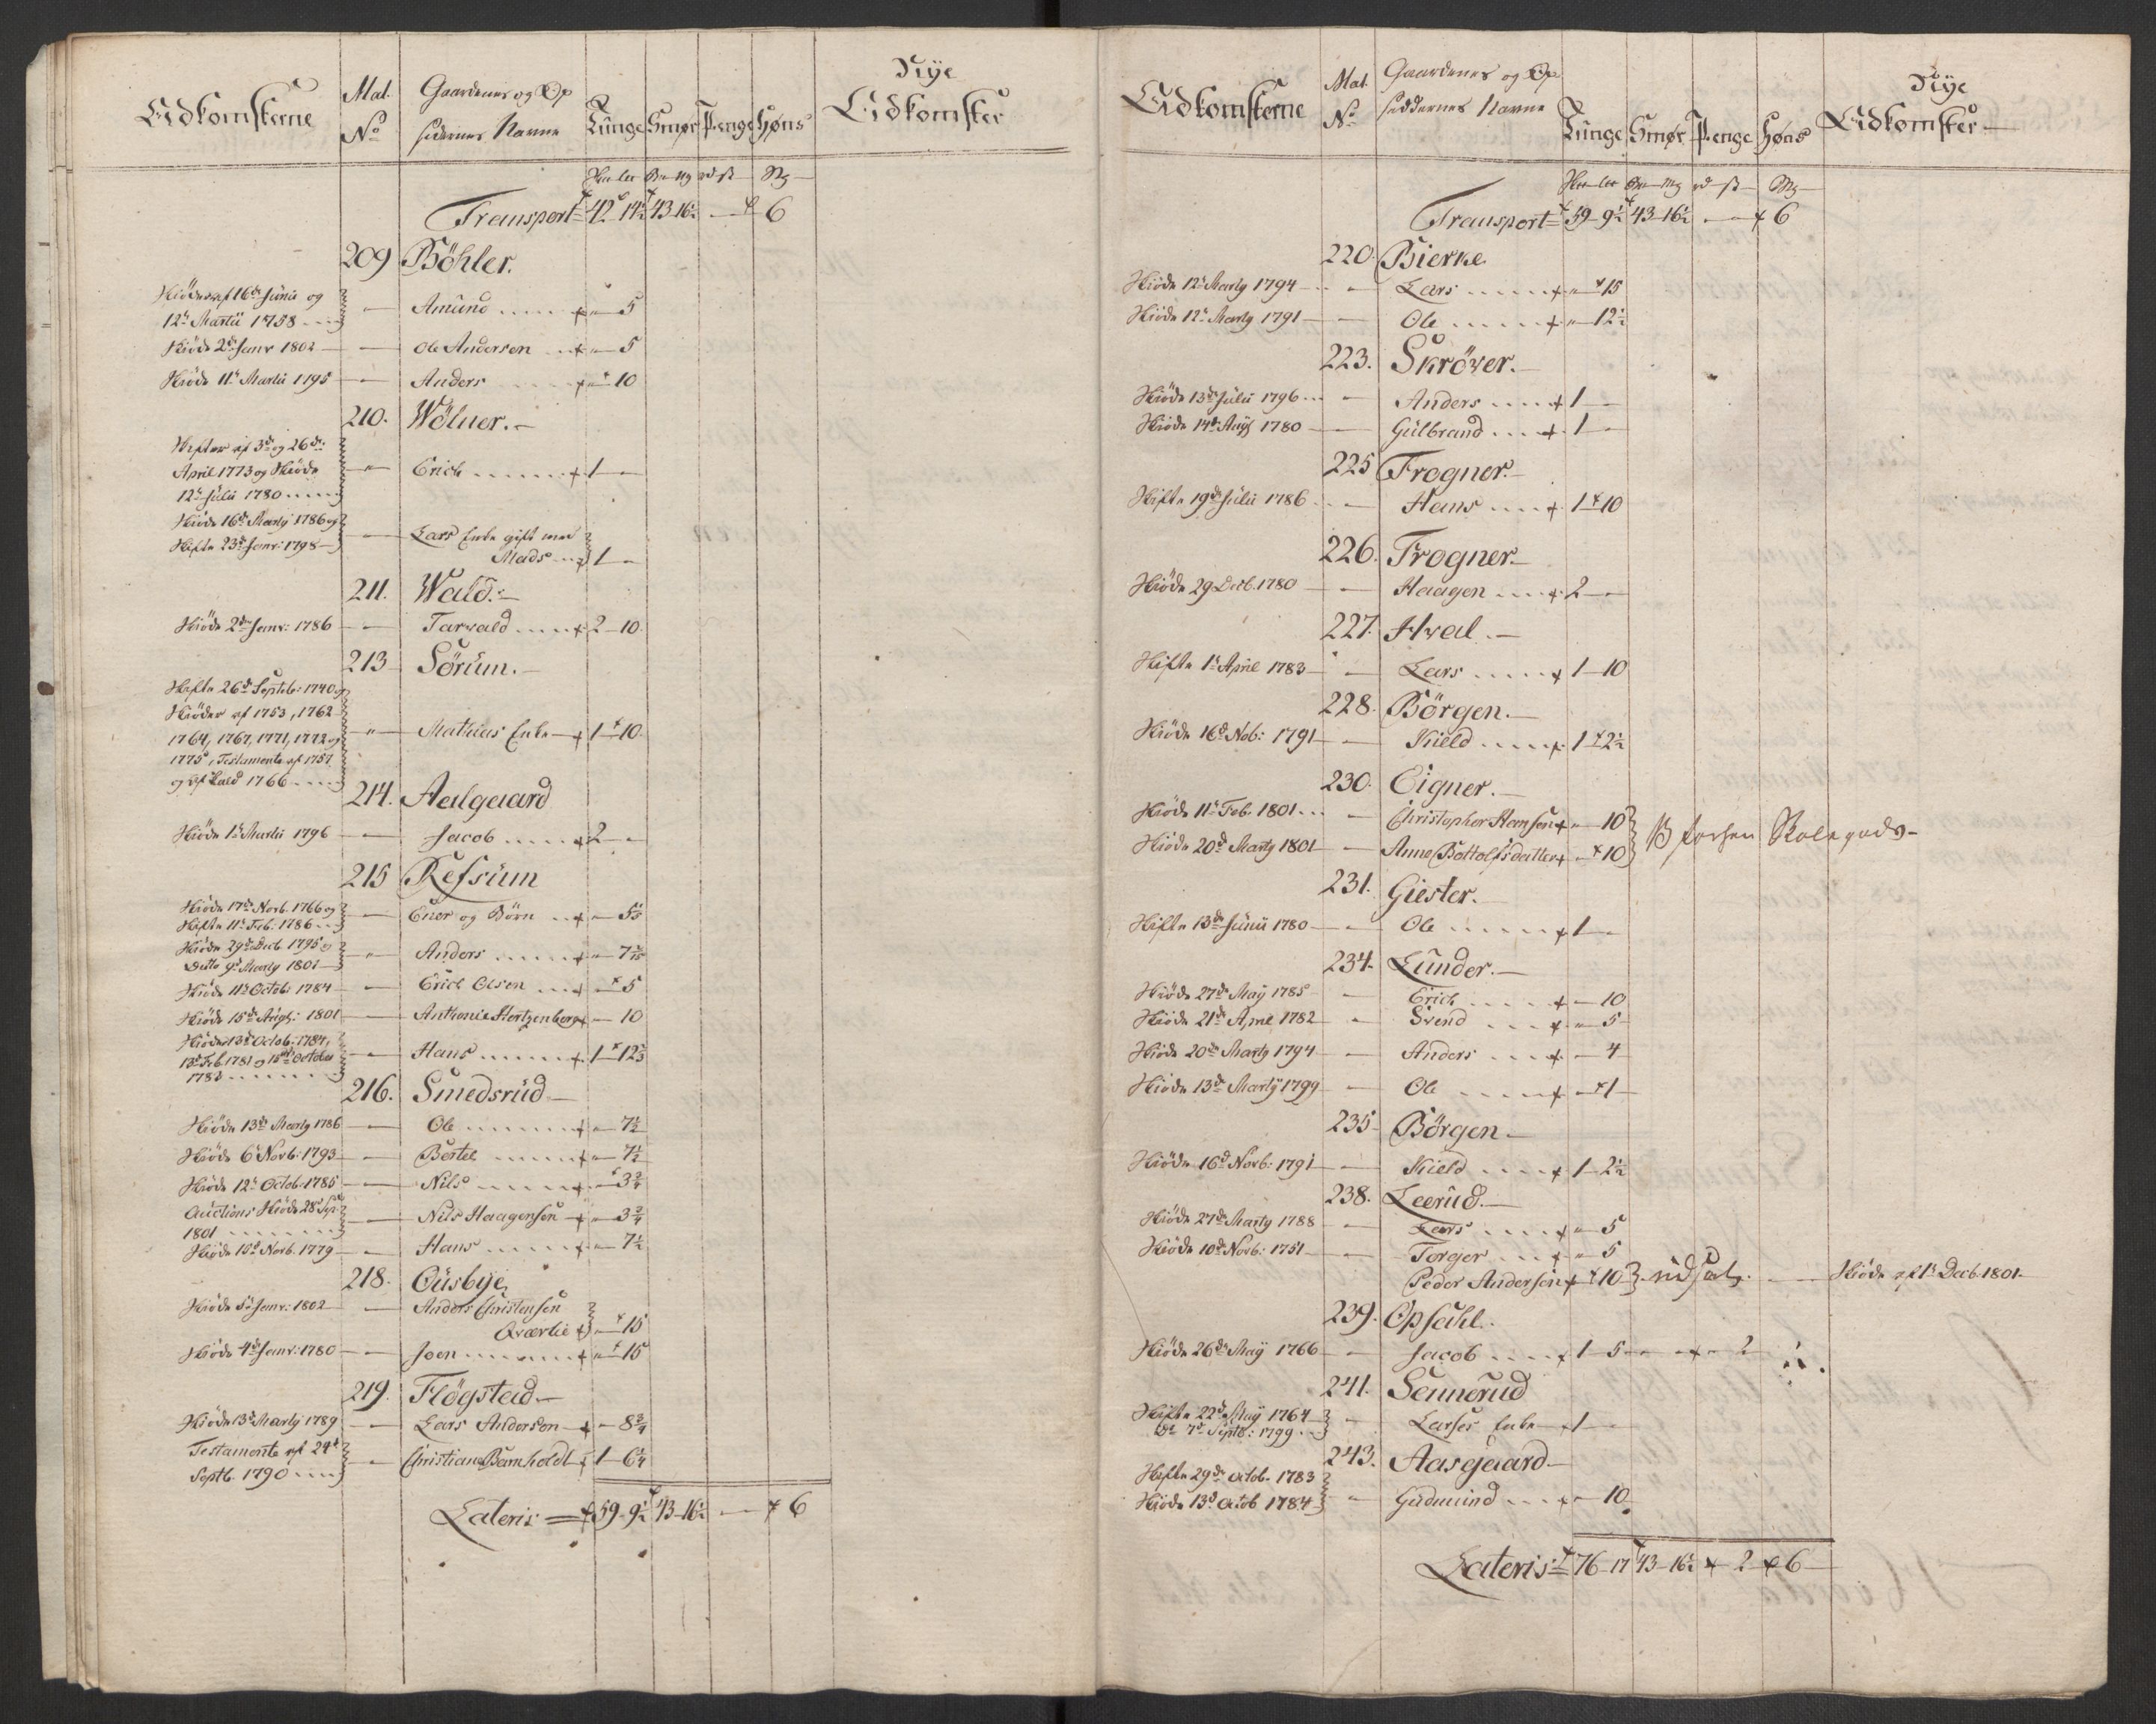 Adkomsterne
Mat. No
Gaardenes og Op
sidernes Navne
Tunge Smør Penge Høns
Nye
Adkomster
Transport 42 14½ 43-16½ — 6
209 Böhler.
Kiöder af 16de Junii og
12te Martii 1758
Amund 5
Kiöde 2den Janv 1802 — Ole Andersen 5
Kiöde 11te Martii 1795 — Anders 10
210. Wölner.
Skifter af 3de og 26de
April 1773 og Kiöde
12te Julii 1780
Erich 1
Kiöde 16de Martij 1786 og
Skifte 23de Janv: 1798
Lars Enke gift med
Mads 1
211. Wald.
Kiöde 2den Janv: 1786 — Tarvald 2-10
213 Sörum.
Skifte 26de Septeb: 1740,
Kiöder af 1753, 1762
1764, 1767, 1771, 1772 og
1775, Testamente af 1757
og af Kald 1766
Mathias Enke 1-10
214. Aalgaard
Kiöde 1te Martii 1796 — Jacob 2
215 Refsum
Kiöde 17de Novb. 1766 og
Skifte 11te Feb. 1786
Ener og Börn 5
Kiöde 29de Decb 1795 og
Ditto 9de Martij 1801
Anders 7
Kiöde 11te Octob: 1784 — Erich Olsen 5
Kiöde 15de Aügst: 1801 — Anthonie Hertzenberg 10
Kiöder 13de Octob: 1784,
13de Feb 1781 og 15de October
1783
Hans 1-12
216. Smedsrüd
Kiöde 13de Martij 1786 — Ole 7½
Kiöde 6te Novb: 1793 — Bertel 7½
Kiöde 12te Octob: 1785 — Nils 3¾
Auctions Kiöde 28de Sep:
1801
Nils Haagensen 3¾
Kiöde 10de Novb. 1779 — Hans 7½
218. Ousbye
Kiöde 5te Janv: 1802 — Anders Christensen
Qværlie 15
Kiöde 4de Janv: 1780 — Joen 15
219. Flögstad
Kiöde 13de Martij 1789 — Lars Anderson 8¾
Testamente af 24de
Septb. 1790
Christian Barnholdt 1-6¼
Lateris 59-9½ 43-16½ — 6
Adkomsterne
Mat. No
Gaardenes og Op
siddernes Navne
Tunge Smør Penge Høns
Nye
Adkomster
Transport 59-9½ 43-16½ — 6
220. Bierke
Kiöde 12te Martij 1794 — Lars 15
Kiöde 12te Martij 1791 — Ole 12½
223. Skröver.
Kiöde 13de Julii 1796 — Anders 1
Kiöde 14de Aug 1780 — Gülbrand 1
225 Frogner
Skifte 19de Julii 1786 — Hans 1-10
226. Frogner
Kiöde 29 Decb. 1780 — Haagen 2
227. Hval.
Skifte 1te April 1783 — Lars 1-10
228. Börgen.
Kiöde 16de Nob: 1791 — Kield 1-2½
230. Eigner.
Kiöde 11te Feb. 1801 — Christopher Hansen 10
Kiöde 20de Martij 1801 — Anne Bottolfsdatter 10
231. Giester.
Skifte 13de Junii 1780 — Ole 1
234. Lünder.
Kiöde 27de Maij 1785 — Erich 10
Kiöde 21de April 1782 — Svend 5
Kiöde 20de Martij 1794 — Anders 4
Kiöde 13de Martij 1799 — Ole 1
235 Börgen
Kiöde 16de Novb: 1791 — Kield 1-2½
238. Leerud.
Kiöde 27de Martij 1788 — Lars 5
Kiöde 10de Novb: 1751 — Torger 5
Peder Andersen 10 udsat. — Kiöde af 1te Decb. 1801.
239. Opsahl.
Kiöde 26de Maij 1766 — Jacob 1-5 — 2
241. Sennerud
Skifte 22de Maij 1764
7de Septb: 1799
Larses Enke 1
243. Aasgaard
Skifte 29de Octob. 1783
Kiöde 13de Octob 1784
Gudmund 10
Lateris 76-17 43-16½ 2 6